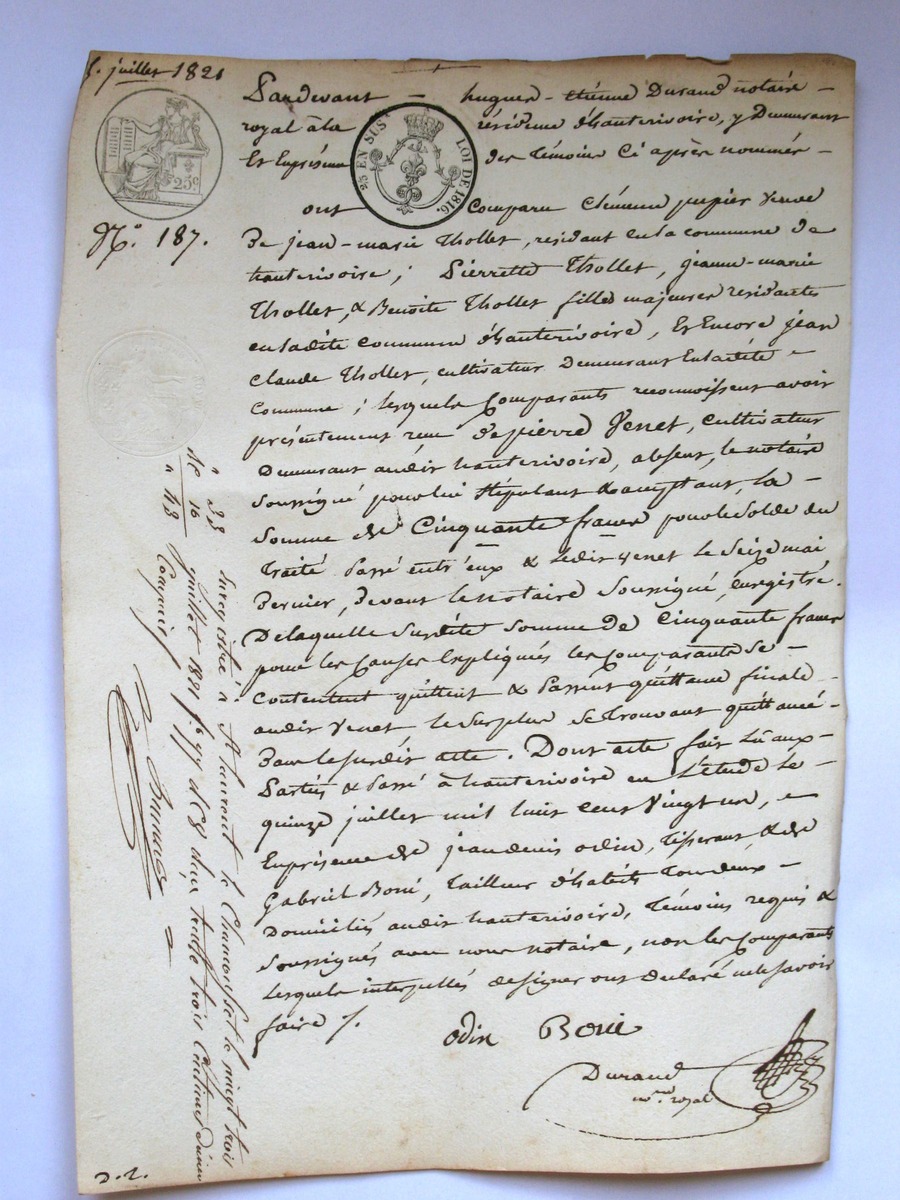 juillet 1821
25 EN SUS
LOI DE 1816.
25c
N.o 187.
Pardevant - hugues - étienne Durand notaire -
royal à la résidence d'hauterivoire, y Demeurant
Et En présence des témoins Ci après nommés -
ont Comparu Clémence pupier veuve
De jean-marie Thollet, résidant en la commune de
hauterivoire ; Pierrette Thollet, jeanne-marie
Thollet, & Benoite Thollet filles majeures residantes
en ladite commune d'hauterivoire, Et Encore jean
Claude Thollet, cultivateur Demeurant Enladite =
Commune ; lesquels Comparants reconnoissent avoir
présentement recu de pierre Venet, cultivateur
Demeurant audit hauterivoire, absent, le notaire
Soussigné pour lui stipulant & acceptant, la -
Somme de Cinquante francs pour le solde du
Traité Passé entr'eux & ledit Venet le Seize mai
Dernier, Devant le notaire Soussigné, enregistré.
De laquelle Susdite Somme de Cinquante francs
pour les Causes Expliqués les Comparants Se -
Contentent quittent & Passent quittance finale
audit Venet, le Surplus se trouvant quittancé -
Dans le susdit acte. Dont acte fait Lu aux -
Parties & Passé à hauterivoire en L'étude Le -
quinze juillet mil huit cent Vingt un, =
En présence de jean denis odin, tisserant, & de
Gabriel Boué, tailleur d'habits Tous deux -
Domiciliés audit hauterivoire, témoins requis &
Soussignés avec nous notaire, non les Comparants
Lesquels interpellés de signer ont Déclaré ne le savoir
faire /.
odin Boué
Durand
n.re royal
enregistré à St Laurent de Chamousset le vingt trois
juillet 1821 f.
deux francs trois Centimes
Compris
D. 2.